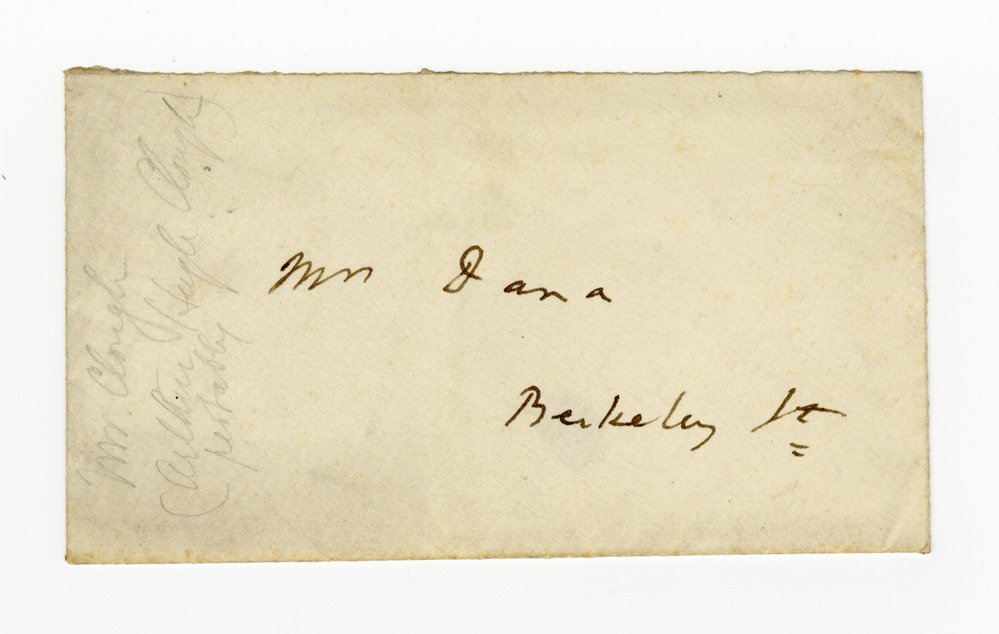 Mrs Dana
Berkeley St
Mr. Clough
(Arthur Hugh Clough)
probably